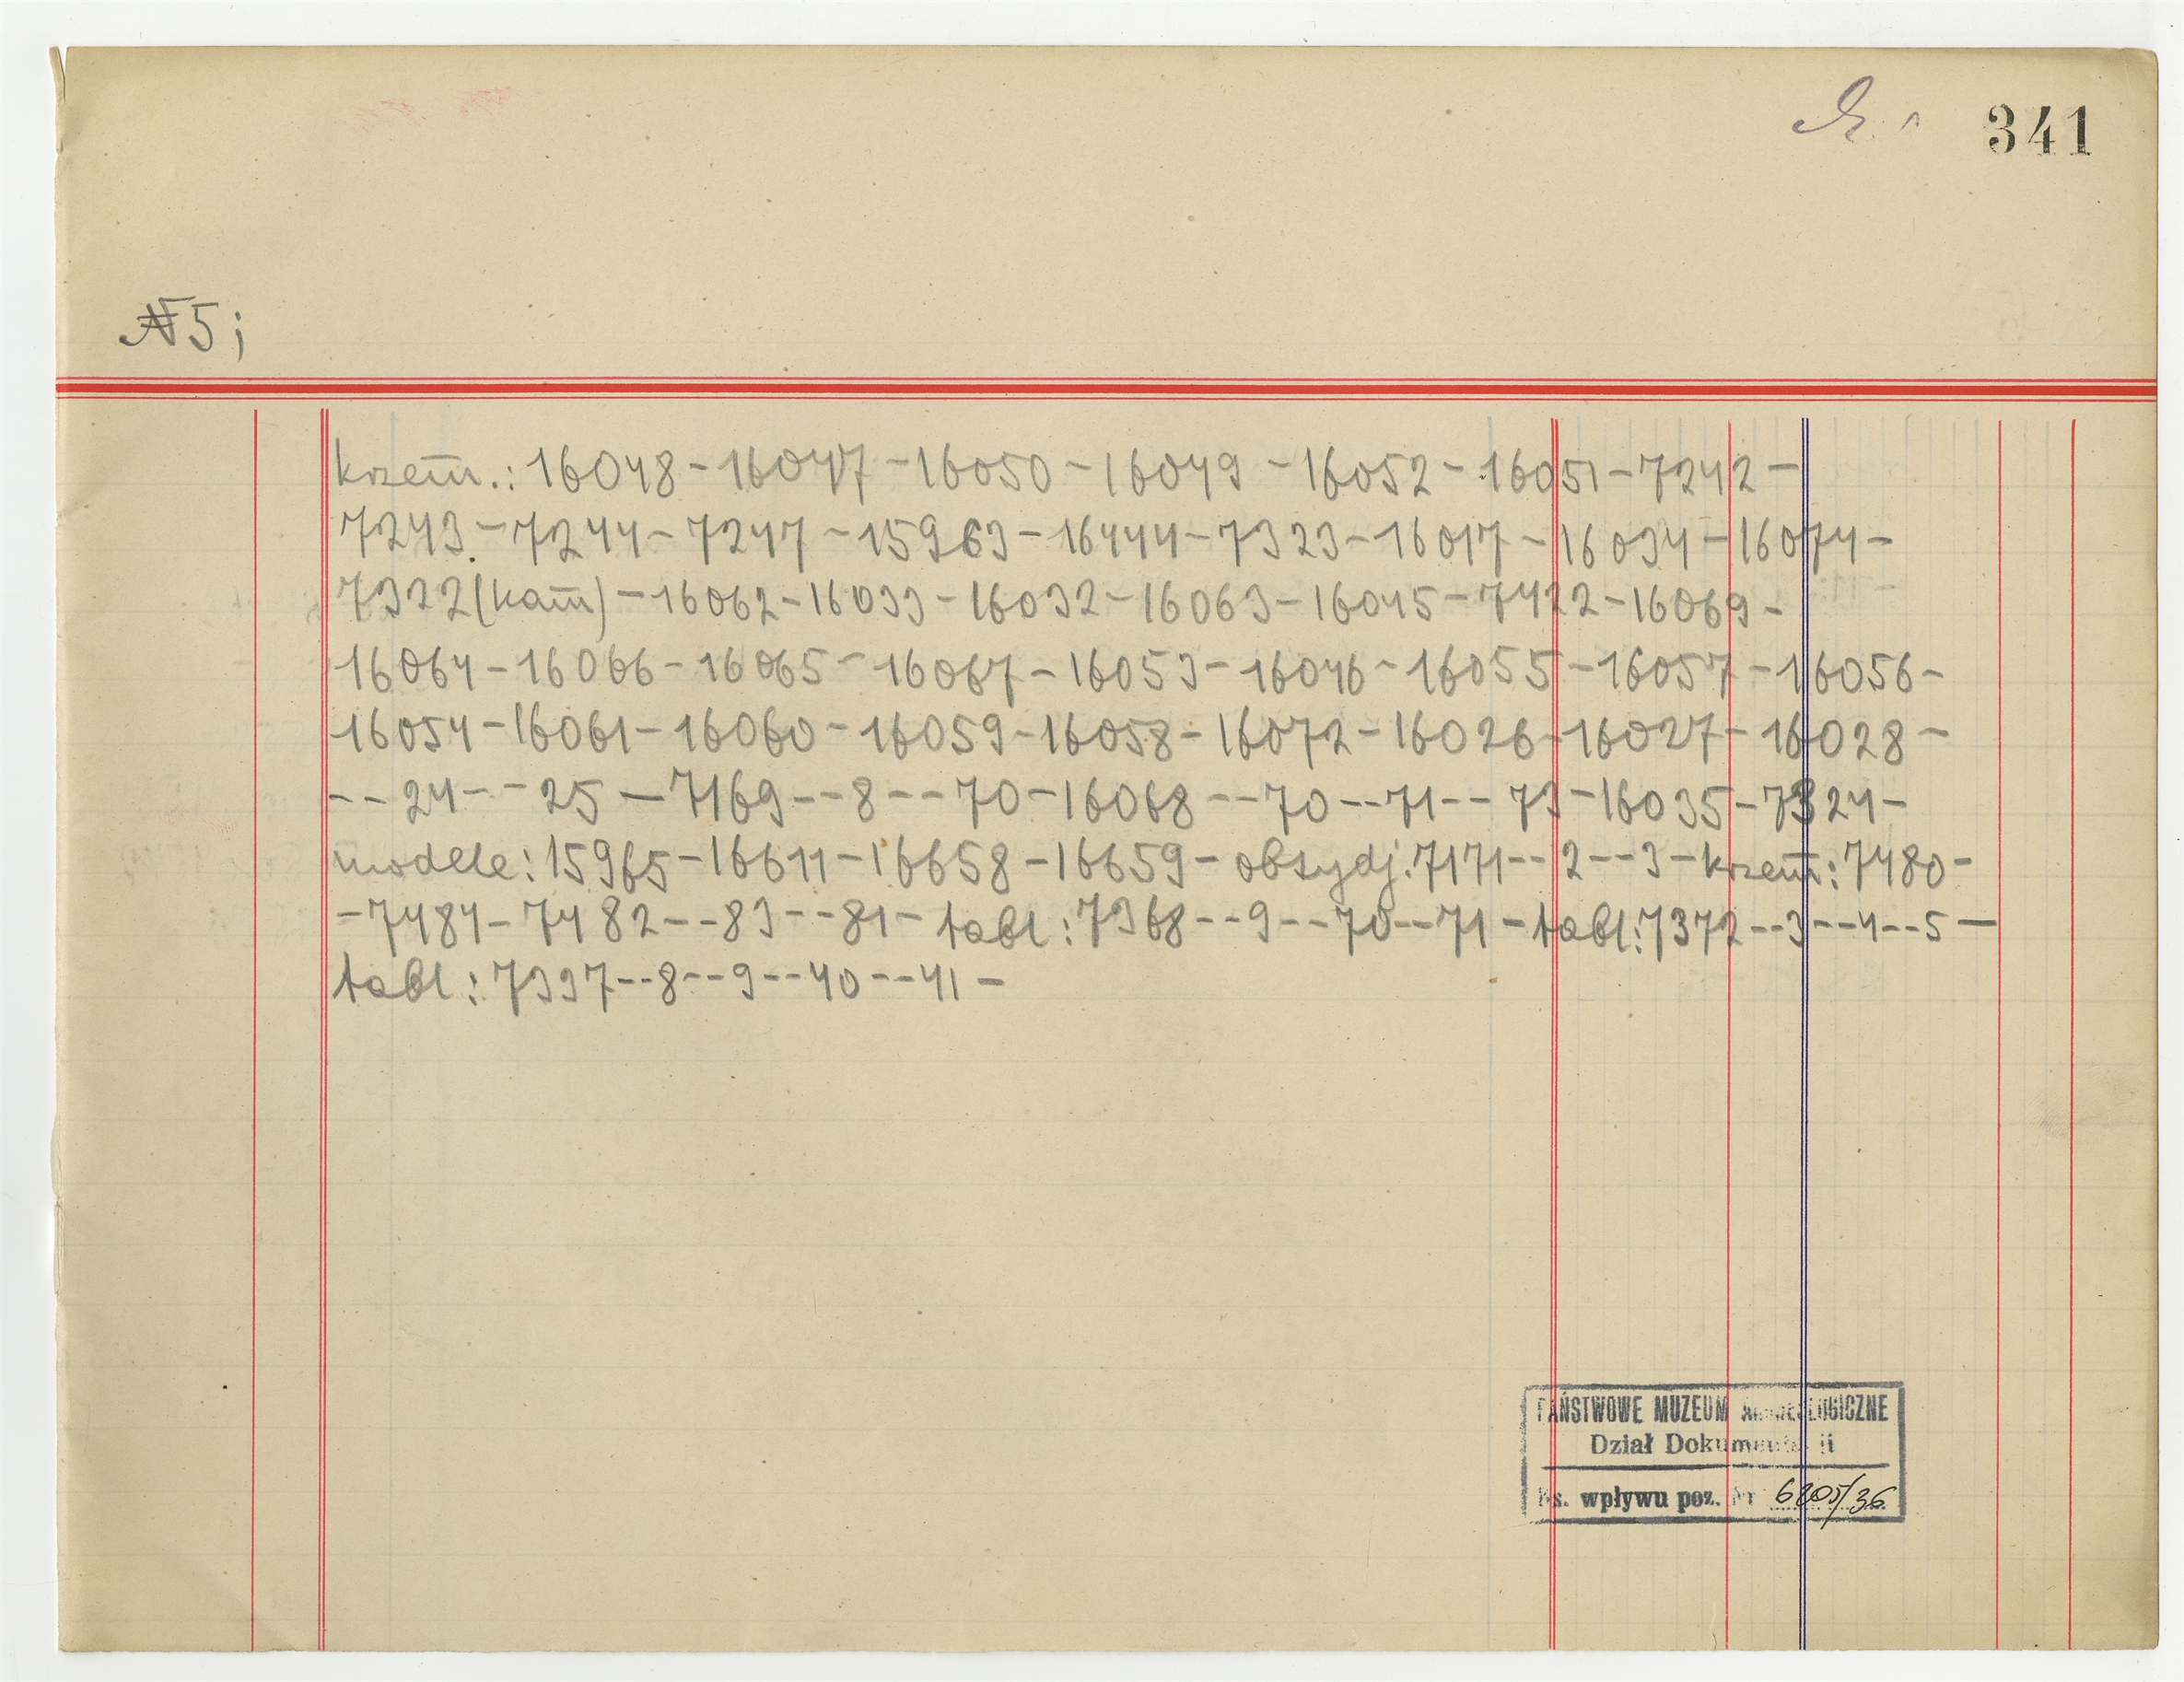 341
№ 5;
krzem̄.: 16048 - 16047 - 16050 - 16049 - 16052 - 16051 - 7242 -
7243 - 7244 - 7247 - 15963 - 16444 - 7323 - 16017 - 16034 - 16074 -
7322 (kam̄) - 16062 - 16033 - 16032 - 16063 - 16045 - 7422 - 16069 -
16064 - 16066 - 16065 - 16067 - 16053 - 16046 - 16055 - 16057 - 16056 -
16054 - 16061 - 16060 - 16059 - 16058 - 16072 - 16026 - 16027 - 16028 -
-- 24 -- 25 — 7169 -- 8 -- 70 - 16068 -- 70 -- 71 -- 73 - 16035 - 7324 -
modele: 15965 - 16611 - 16658 - 16659 - obsydj: 7171 -- 2 -- 3 - krzem̄: 7480 -
- 7484 - 7482 -- 83 -- 81 - tabl: 7368 -- 9 -- 70 -- 71 - tabl: 7372 -- 3 -- 4 -- 5 —
tabl: 7337 -- 8 -- 9 -- 40 -- 41 -
PAŃSTWOWE MUZEUM ARCHEOLOGICZNE
Dział Dokumentacji
Ks. wpływu poz. Nr 6205/36